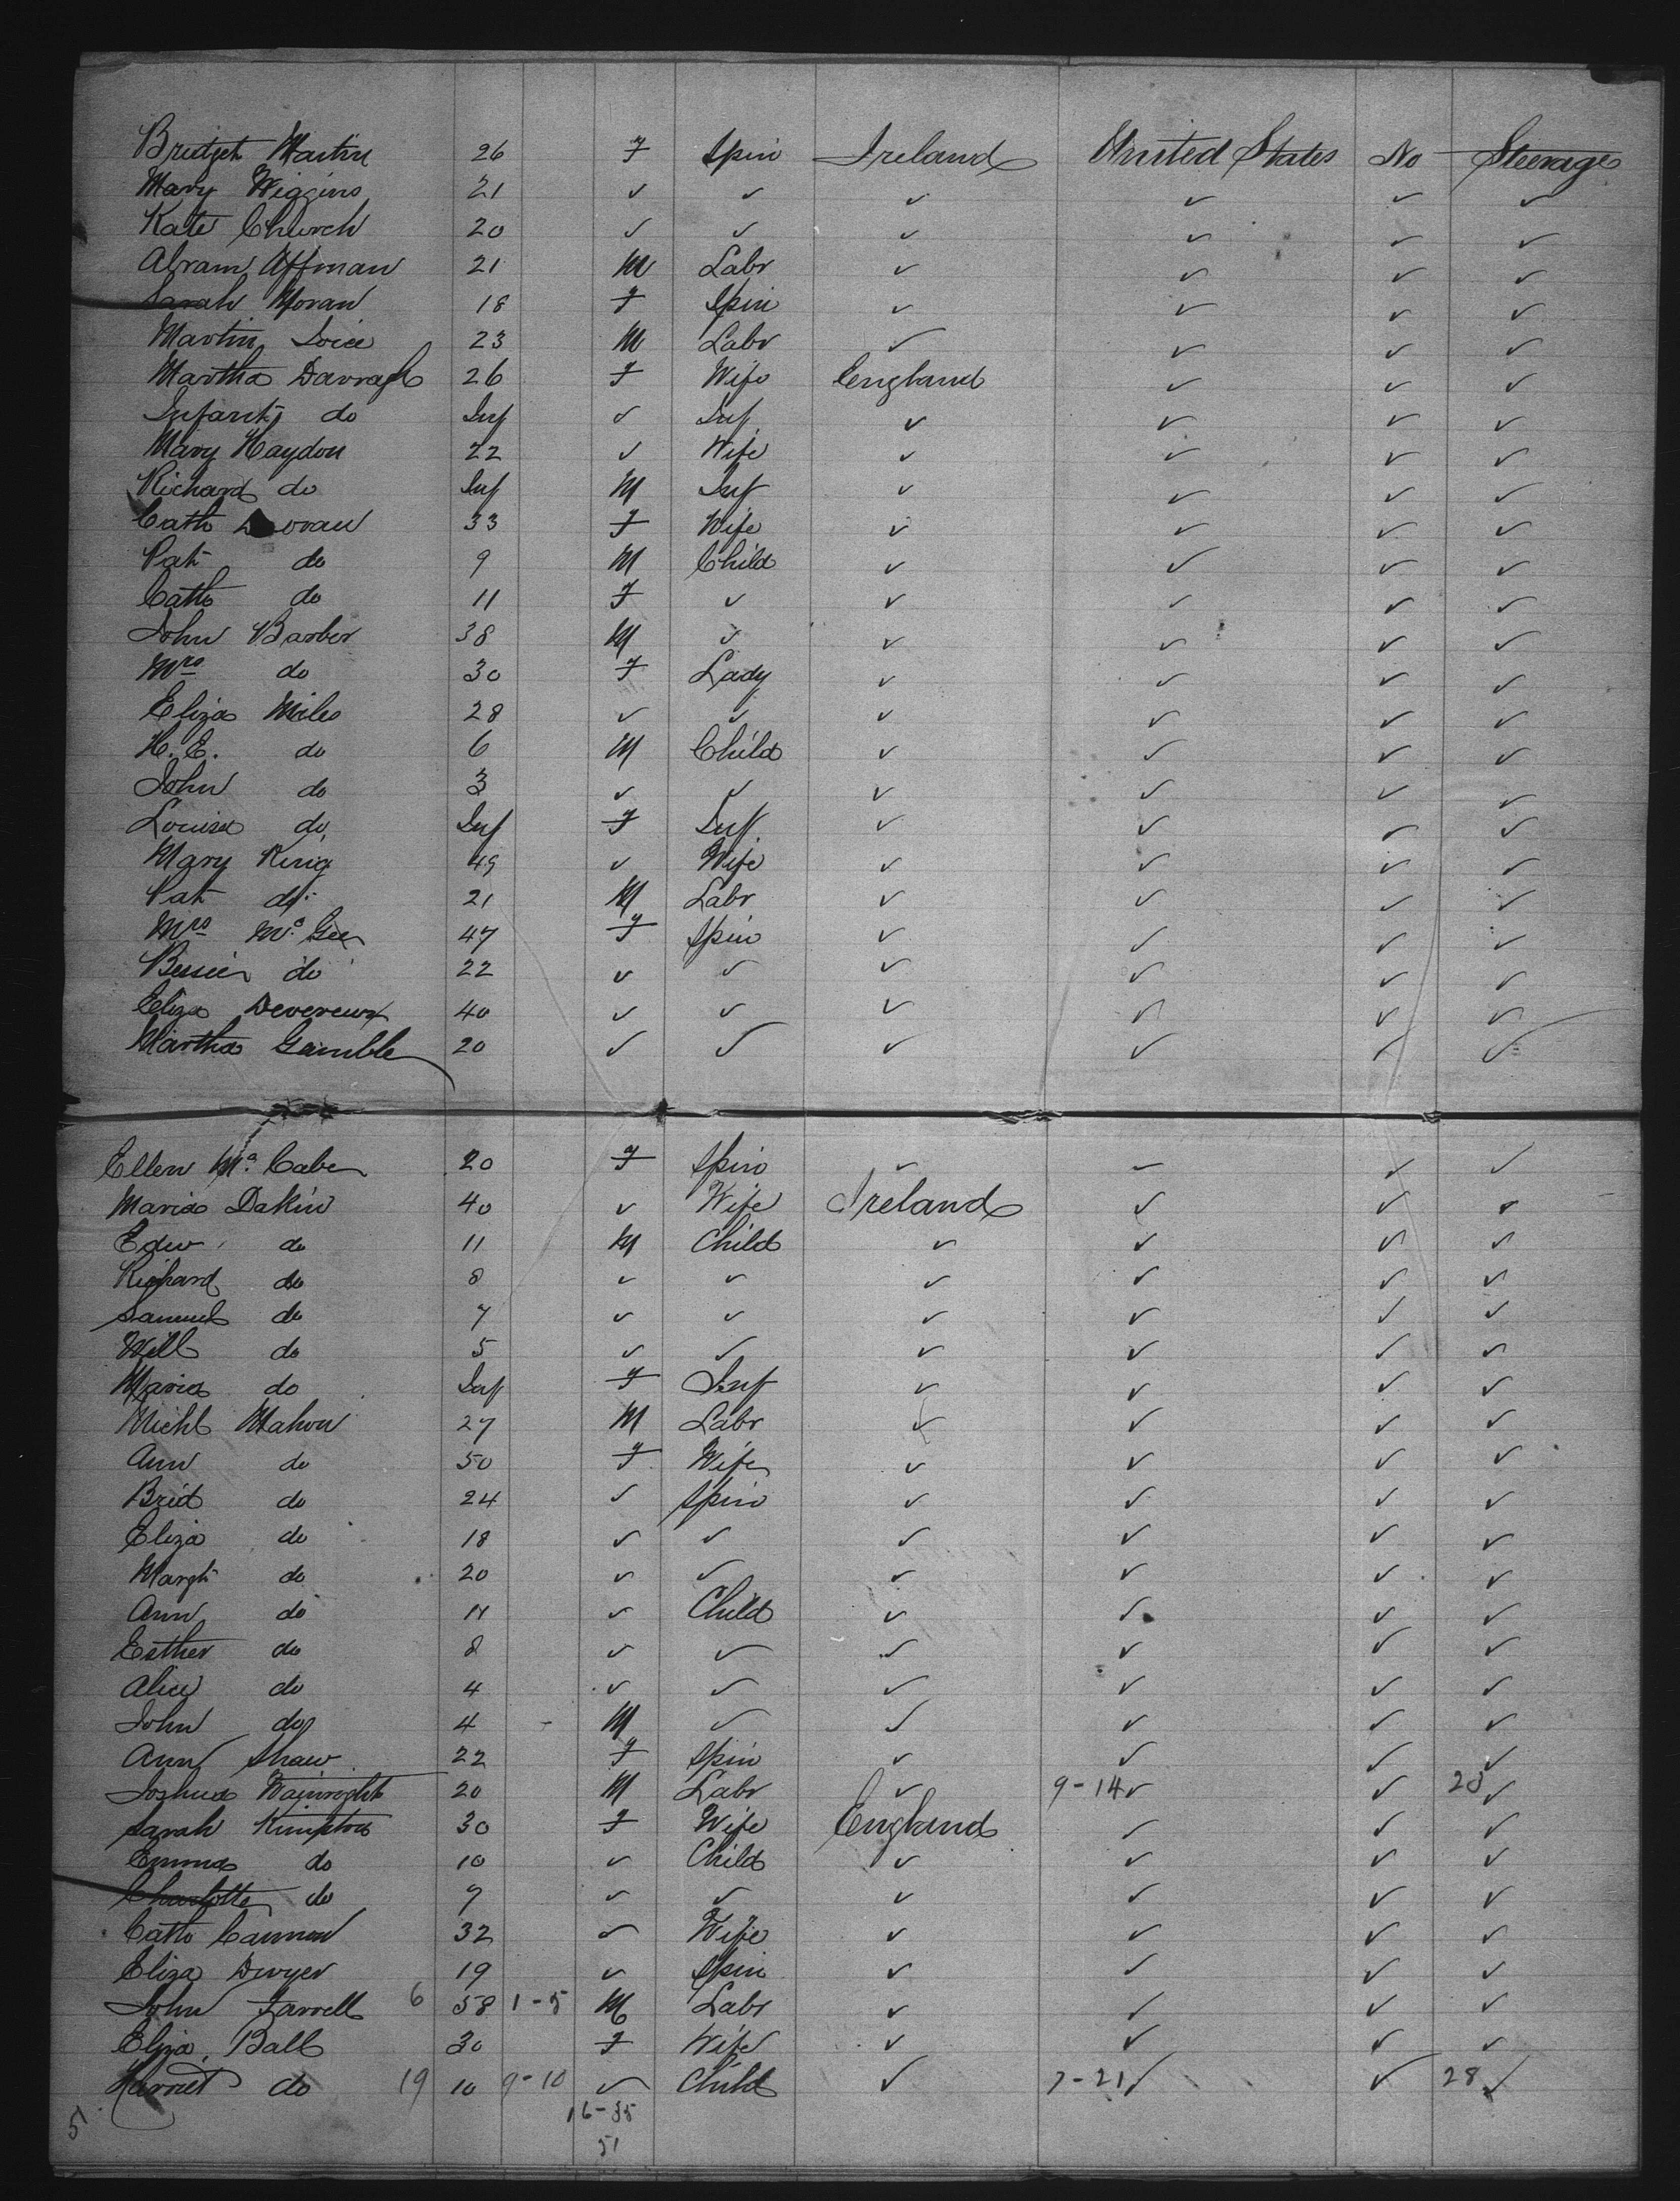 Bridget Martin 26 F Spin Ireland United States No Steerage
Mary Wiggins 21 ✓ ✓ ✓ ✓ ✓ ✓
Kate Church 20 ✓ ✓ ✓ ✓ ✓ ✓
Abram Affman 21 M Labr ✓ ✓ ✓ ✓
Sarah Moran 18 F Spin ✓ ✓ ✓ ✓
Martin 23 M Labr ✓ ✓ ✓ ✓
Martha Darragh 26 F Wife England ✓ ✓ ✓
Infant do Inf ✓ Inf ✓ ✓ ✓ ✓
Mary Haydon 22 ✓ Wife ✓ ✓ ✓ ✓
Richard do Inf M Inf ✓ ✓ ✓ ✓
Cath Doran 33 F Wife ✓ ✓ ✓ ✓
Pat do 9 M Child ✓ ✓ ✓ ✓
Cath do 11 F ✓ ✓ ✓ ✓ ✓
John Barber 38 M ✓ ✓ ✓ ✓ ✓
Mrs do 30 F Lady ✓ ✓ ✓ ✓
Eliza Miles 28 ✓ ✓ ✓ ✓ ✓ ✓
H. E. do 6 M Child ✓ ✓ ✓ ✓
John do 3 ✓ ✓ ✓ ✓ ✓ ✓
Louisa do Inf F Inf ✓ ✓ ✓ ✓
Mary King 49 ✓ Wife ✓ ✓ ✓ ✓
Pat do 21 M Labr ✓ ✓ ✓ ✓
Mrs Mc Gee 47 F Spin ✓ ✓ ✓ ✓
Bessie do 22 ✓ ✓ ✓ ✓ ✓ ✓
Eliza Devereux 40 ✓ ✓ ✓ ✓ ✓ ✓
Martha Gamble 20 ✓ ✓ ✓ ✓ ✓ ✓
Ellen Mc Cabe 20 F Spin ✓ ✓ ✓ ✓
Maria Dakin 40 ✓ Wife Ireland ✓ ✓ ✓
Edw do 11 M Child ✓ ✓ ✓ ✓
Richard do 8 ✓ ✓ ✓ ✓ ✓ ✓
Samuel do 7 ✓ ✓ ✓ ✓ ✓ ✓
Will do 5 ✓ ✓ ✓ ✓ ✓ ✓
Maria do Inf F Inf ✓ ✓ ✓ ✓
Michl Mahon 27 M Labr ✓ ✓ ✓ ✓
Ann do 50 F Wife ✓ ✓ ✓ ✓
Brid do 24 ✓ Spin ✓ ✓ ✓ ✓
Eliza do 18 ✓ ✓ ✓ ✓ ✓ ✓
Margt do 20 ✓ ✓ ✓ ✓ ✓ ✓
Ann do 11 ✓ Child ✓ ✓ ✓ ✓
Esther do 8 ✓ ✓ ✓ ✓ ✓ ✓
Alice do 4 ✓ ✓ ✓ ✓ ✓ ✓
John do 4 M ✓ ✓ ✓ ✓ ✓
Ann Shaw 22 F Spin ✓ ✓ ✓ ✓
Joshua Wainwright 20 M Labr ✓ 9-14 ✓ ✓ ✓
Sarah Kimpton 30 F Wife England ✓ ✓ ✓
Emma do 10 ✓ Child ✓ ✓ ✓ ✓
Charlotte do 9 ✓ ✓ ✓ ✓ ✓ ✓
Cath Cannon 32 ✓ Wife ✓ ✓ ✓ ✓
Eliza Dwyer 19 ✓ Spin ✓ ✓ ✓ ✓
John Farrell 6 58 1-5 M Labr ✓ ✓ ✓ ✓
Eliza Ball 30 F Wife ✓ ✓ ✓ ✓
Harriet do 19 10 9-10 ✓ Child ✓ 7-21 ✓ ✓ 28 ✓
5 16-35
51